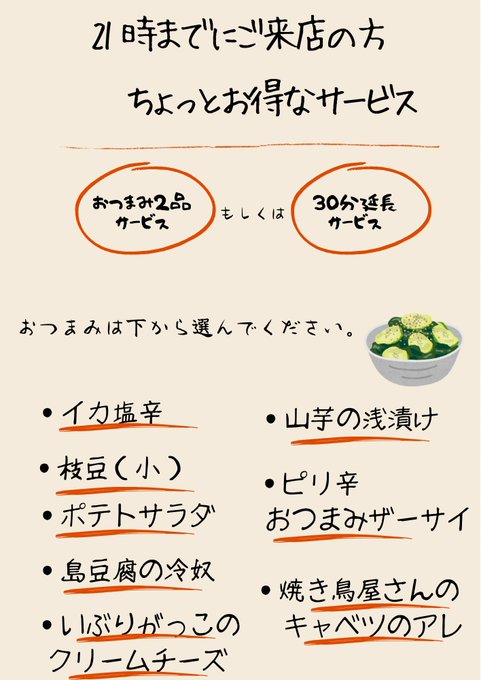 21時までにご来店の方
ちょっとお得なサービス
おつまみ2品
サービス
もしくは
30分延長
サービス
おつまみは下から選んでください。
•イカ塩辛
•枝豆(小)
•ポテトサラダ
•島豆腐の冷奴
•いぶりがっこの
クリームチーズ
•山芋の浅漬け
•ピリ辛
おつまみザーサイ
•焼き鳥屋さんの
キャベツのアレ